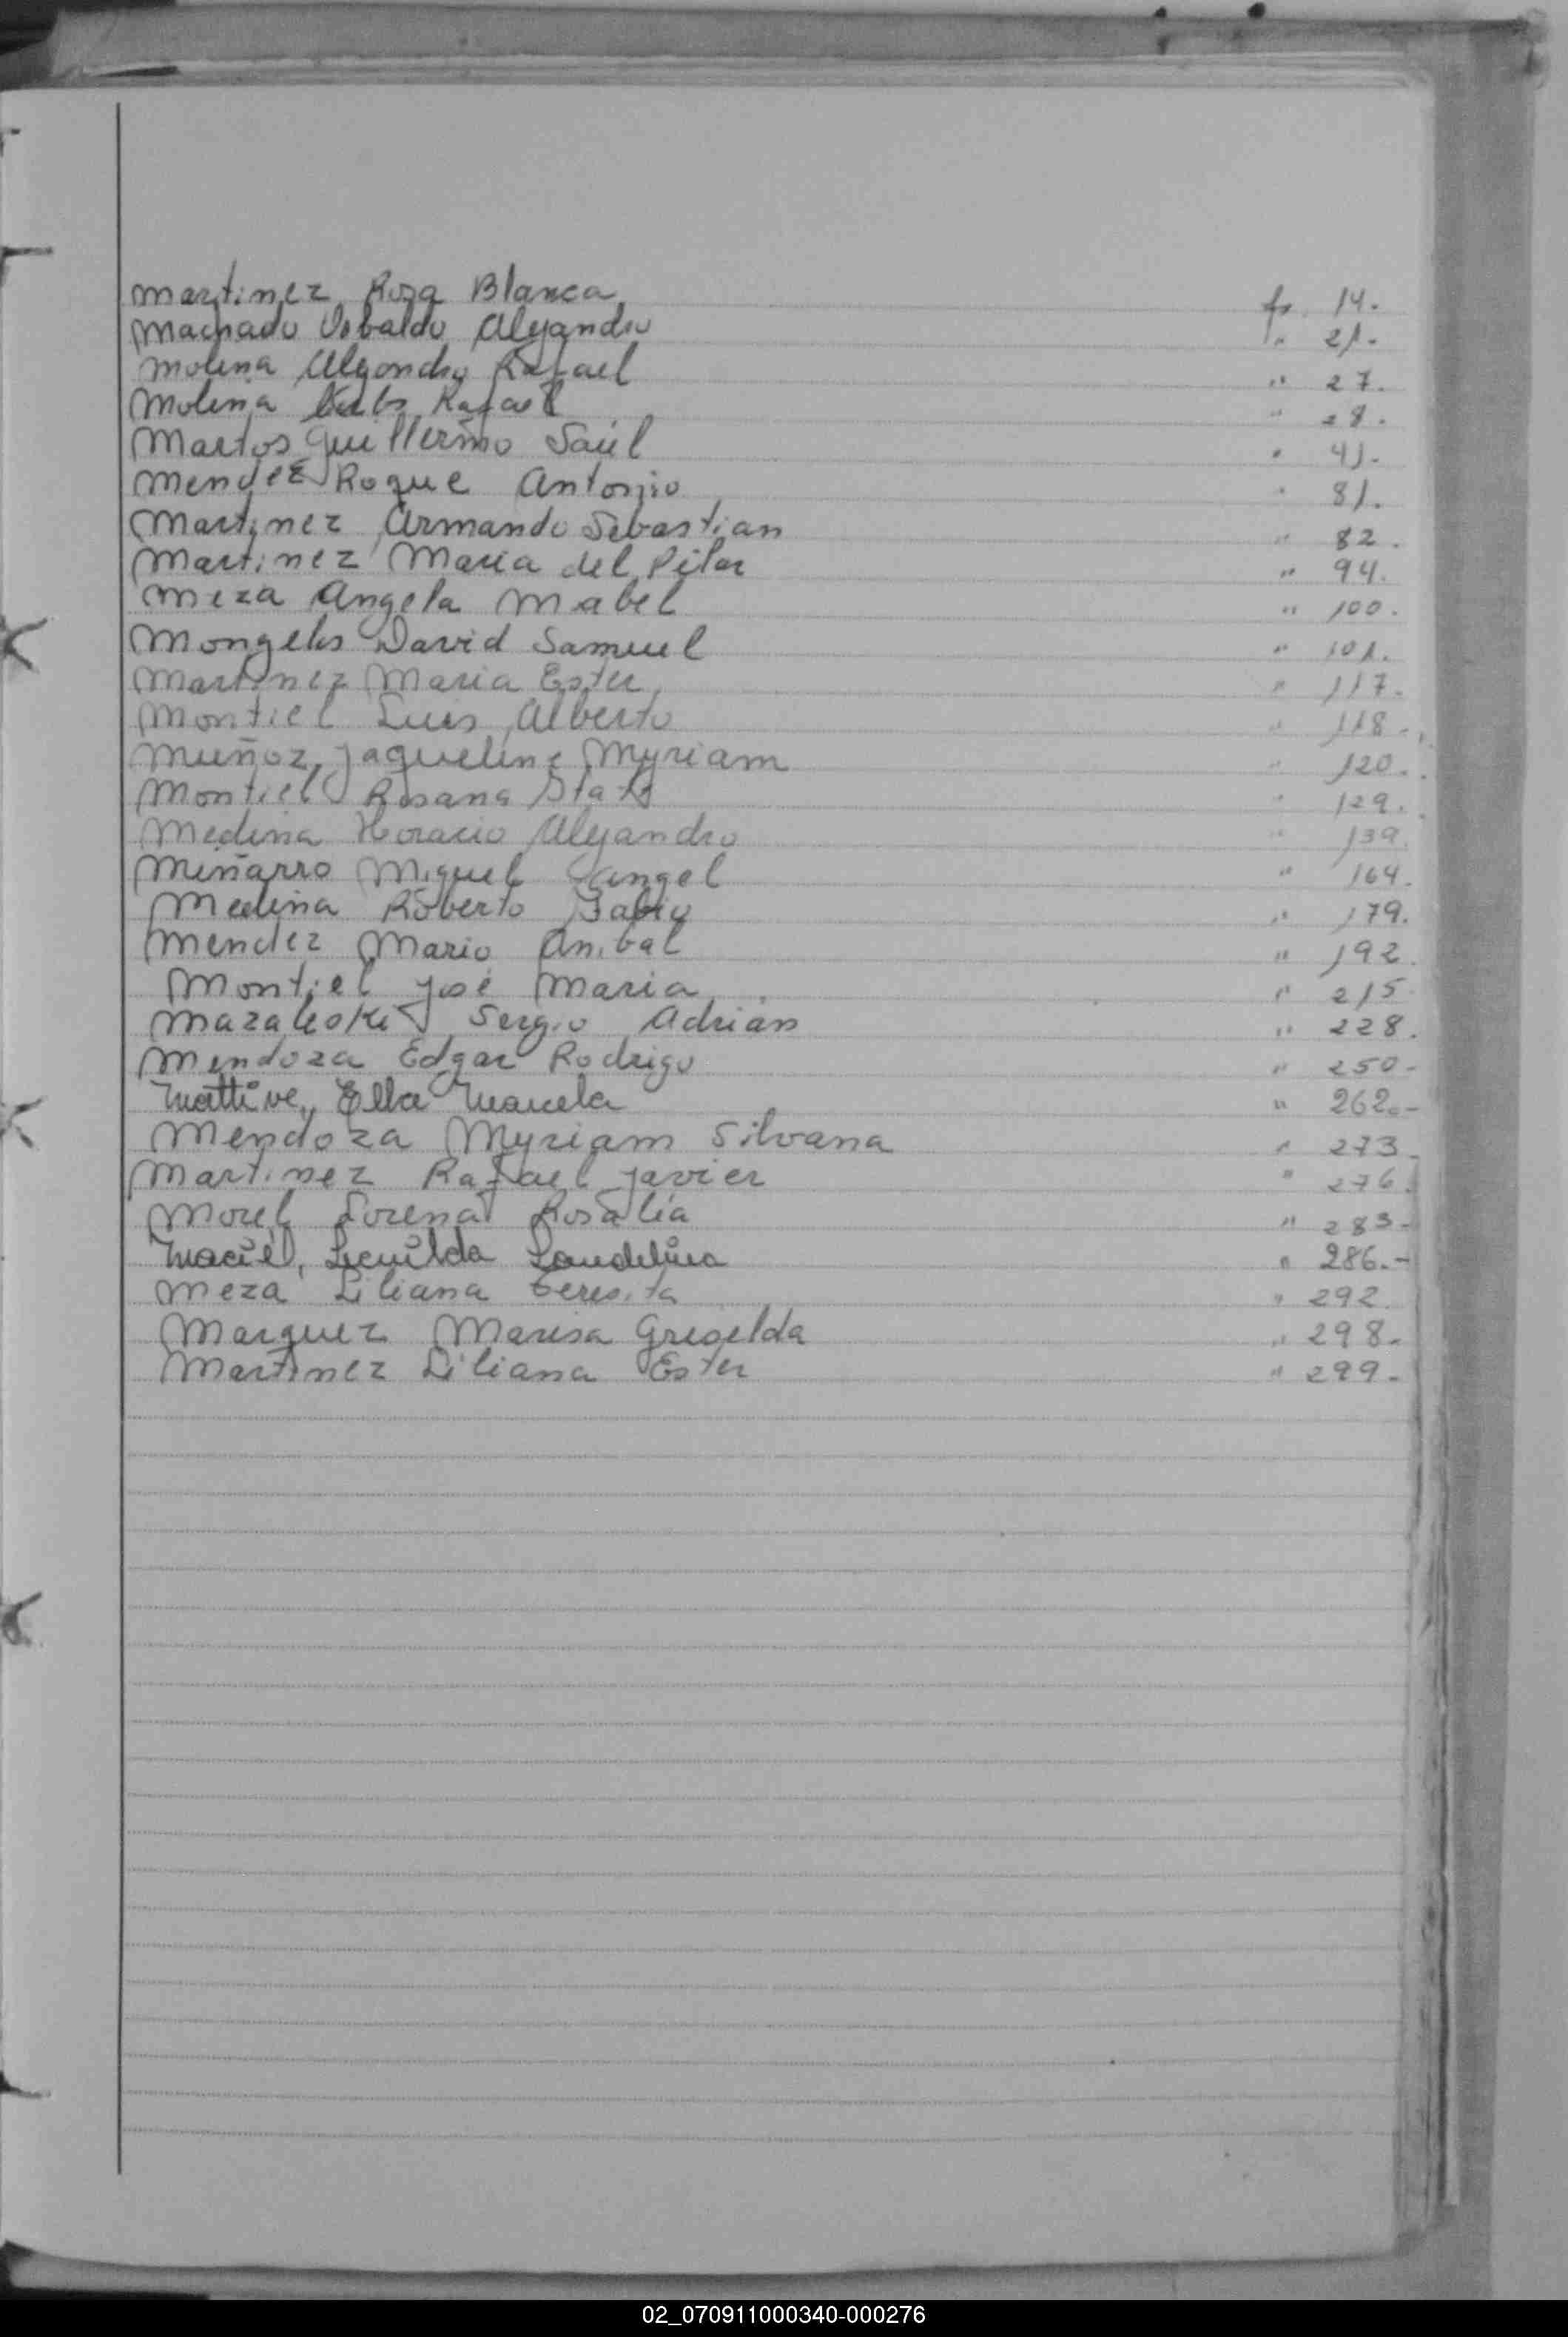 Martinez Rosa Blanca fs. 14.
Machado Osbaldo Alejandro " 21.
Molina Alejandro Rafael " 27.
Molina Rafael " 28.
Martos Guillermo Saúl " 41.
Mendez Roque Antonio " 81.
Martinez Armando Sebastian " 82.
Martinez Maria del Pilar " 94.
Meza Angela Mabel " 100.
Mongelos David Samuel " 101.
Martinez Maria Ester " 117.
Montiel Luis Alberto " 118.-
Muñoz Jaqueline Myriam " 120.
Montiel Rosana " 129.
Medina Horacio Alejandro " 139.
Miñarro Miguel Angel " 164.
Medina Roberto Fabio " 179.
Mendez Mario Anibal " 192.
Montiel José Maria " 215
Mazaleski Sergio Adrián " 228.
Mendoza Edgar Rodrigo " 250-
Mattive, Elba Marcela " 262.-
Mendoza Myriam Silvana " 273.
Martinez Rafael Javier " 276.
Morel Lorena Rosalía " 283-
Maciel, Laudelina " 286.-
Meza Liliana Teresita " 292.
Marquez Marisa Griselda " 298.
Martinez Liliana Ester " 299-
02_070911000340-000276